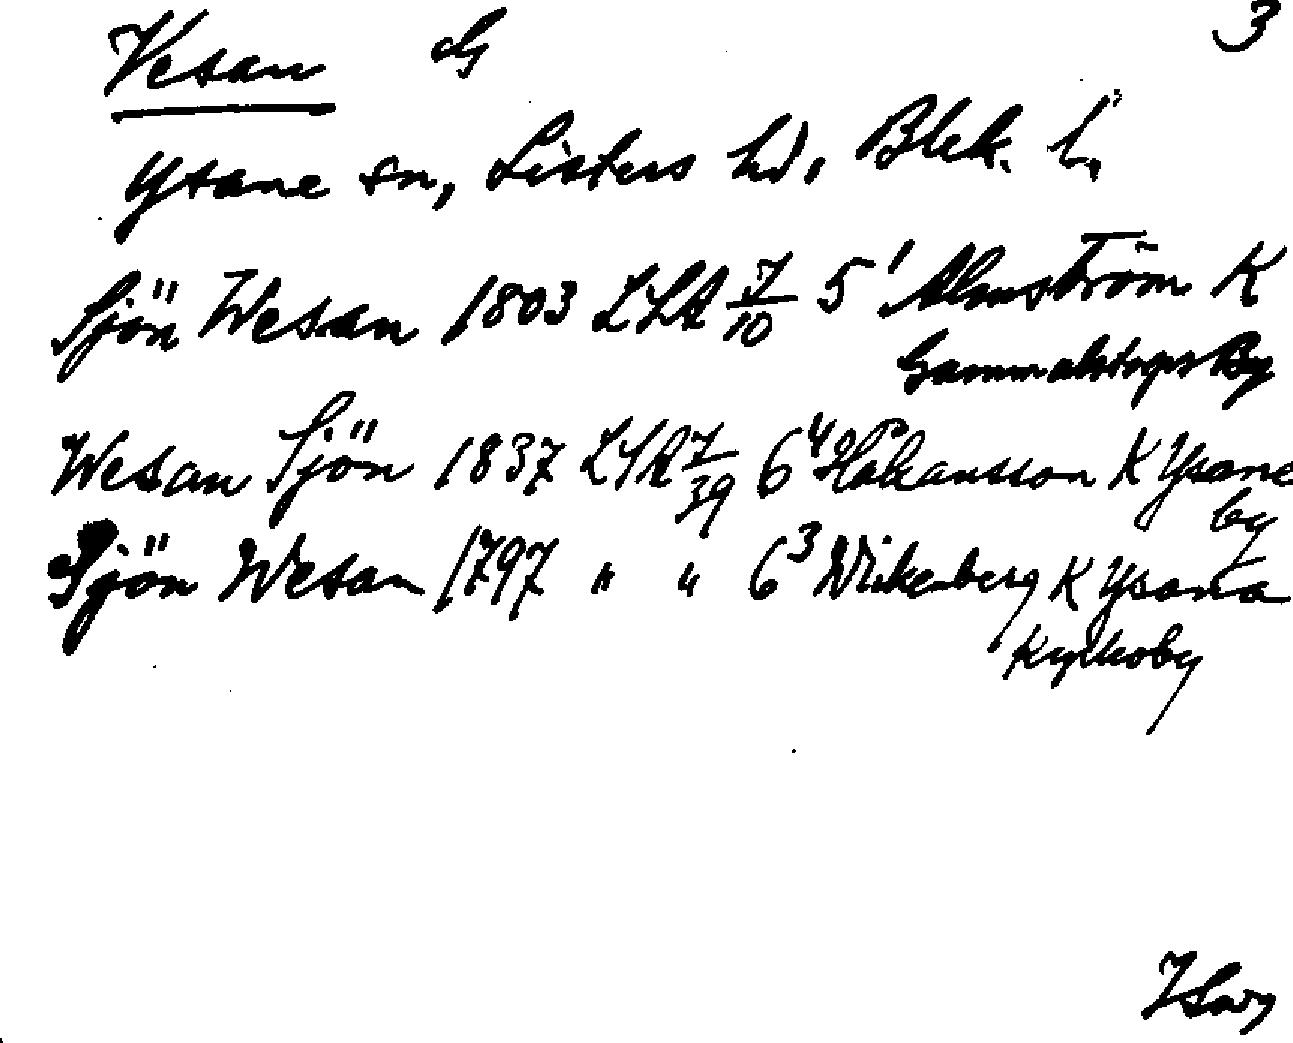 Vesan 3
Ysane sn, Listers hd, Blek. l.
Sjön Wesan 1803 LSA 7/10 5¹ Almström K
Gammalstorps By
Wesan Sjön 1837 LSA 7/39 6⁴ Håkansson K Ysane
by
Sjön Wesan 1797 " " 6³ Wikenberg K Ysana
Kyrkoby